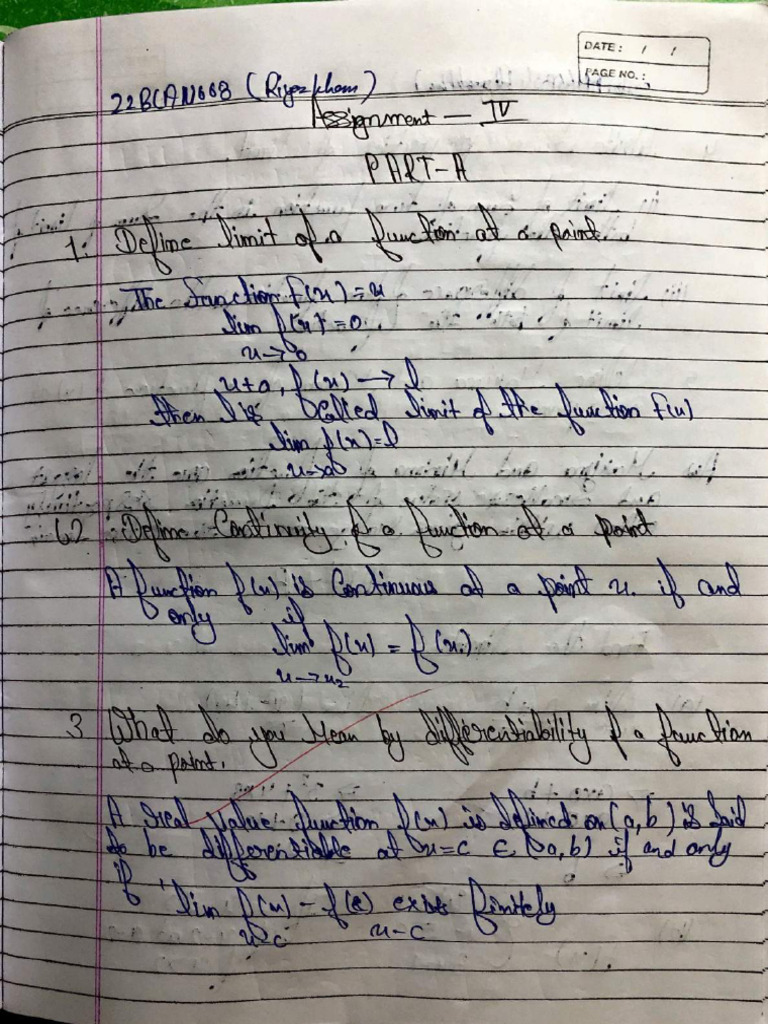 DATE: / /
PAGE NO.:
22BCAN668 (Riyazkham)
Assignment - IV
PART-A
1. Define limit of a function at a point
The function f(x) = x
lim f(x) = 0
x→0
x→a, f(x) → l
then l is called limit of the function f(x)
lim f(x)=l
2 Define Continuity of a function at a point
A function f(x) is Continuous at a point x. if and
only if
lim f(x) = f(x.)
3 What do you Mean by differentiability of a function
at a point.
A real value function f(x) is defined on (a,b) is Said
to be differentiable at x=c ∈ (a,b) if and only
if
lim f(x) - f(c) exists finitely
x→c x-c